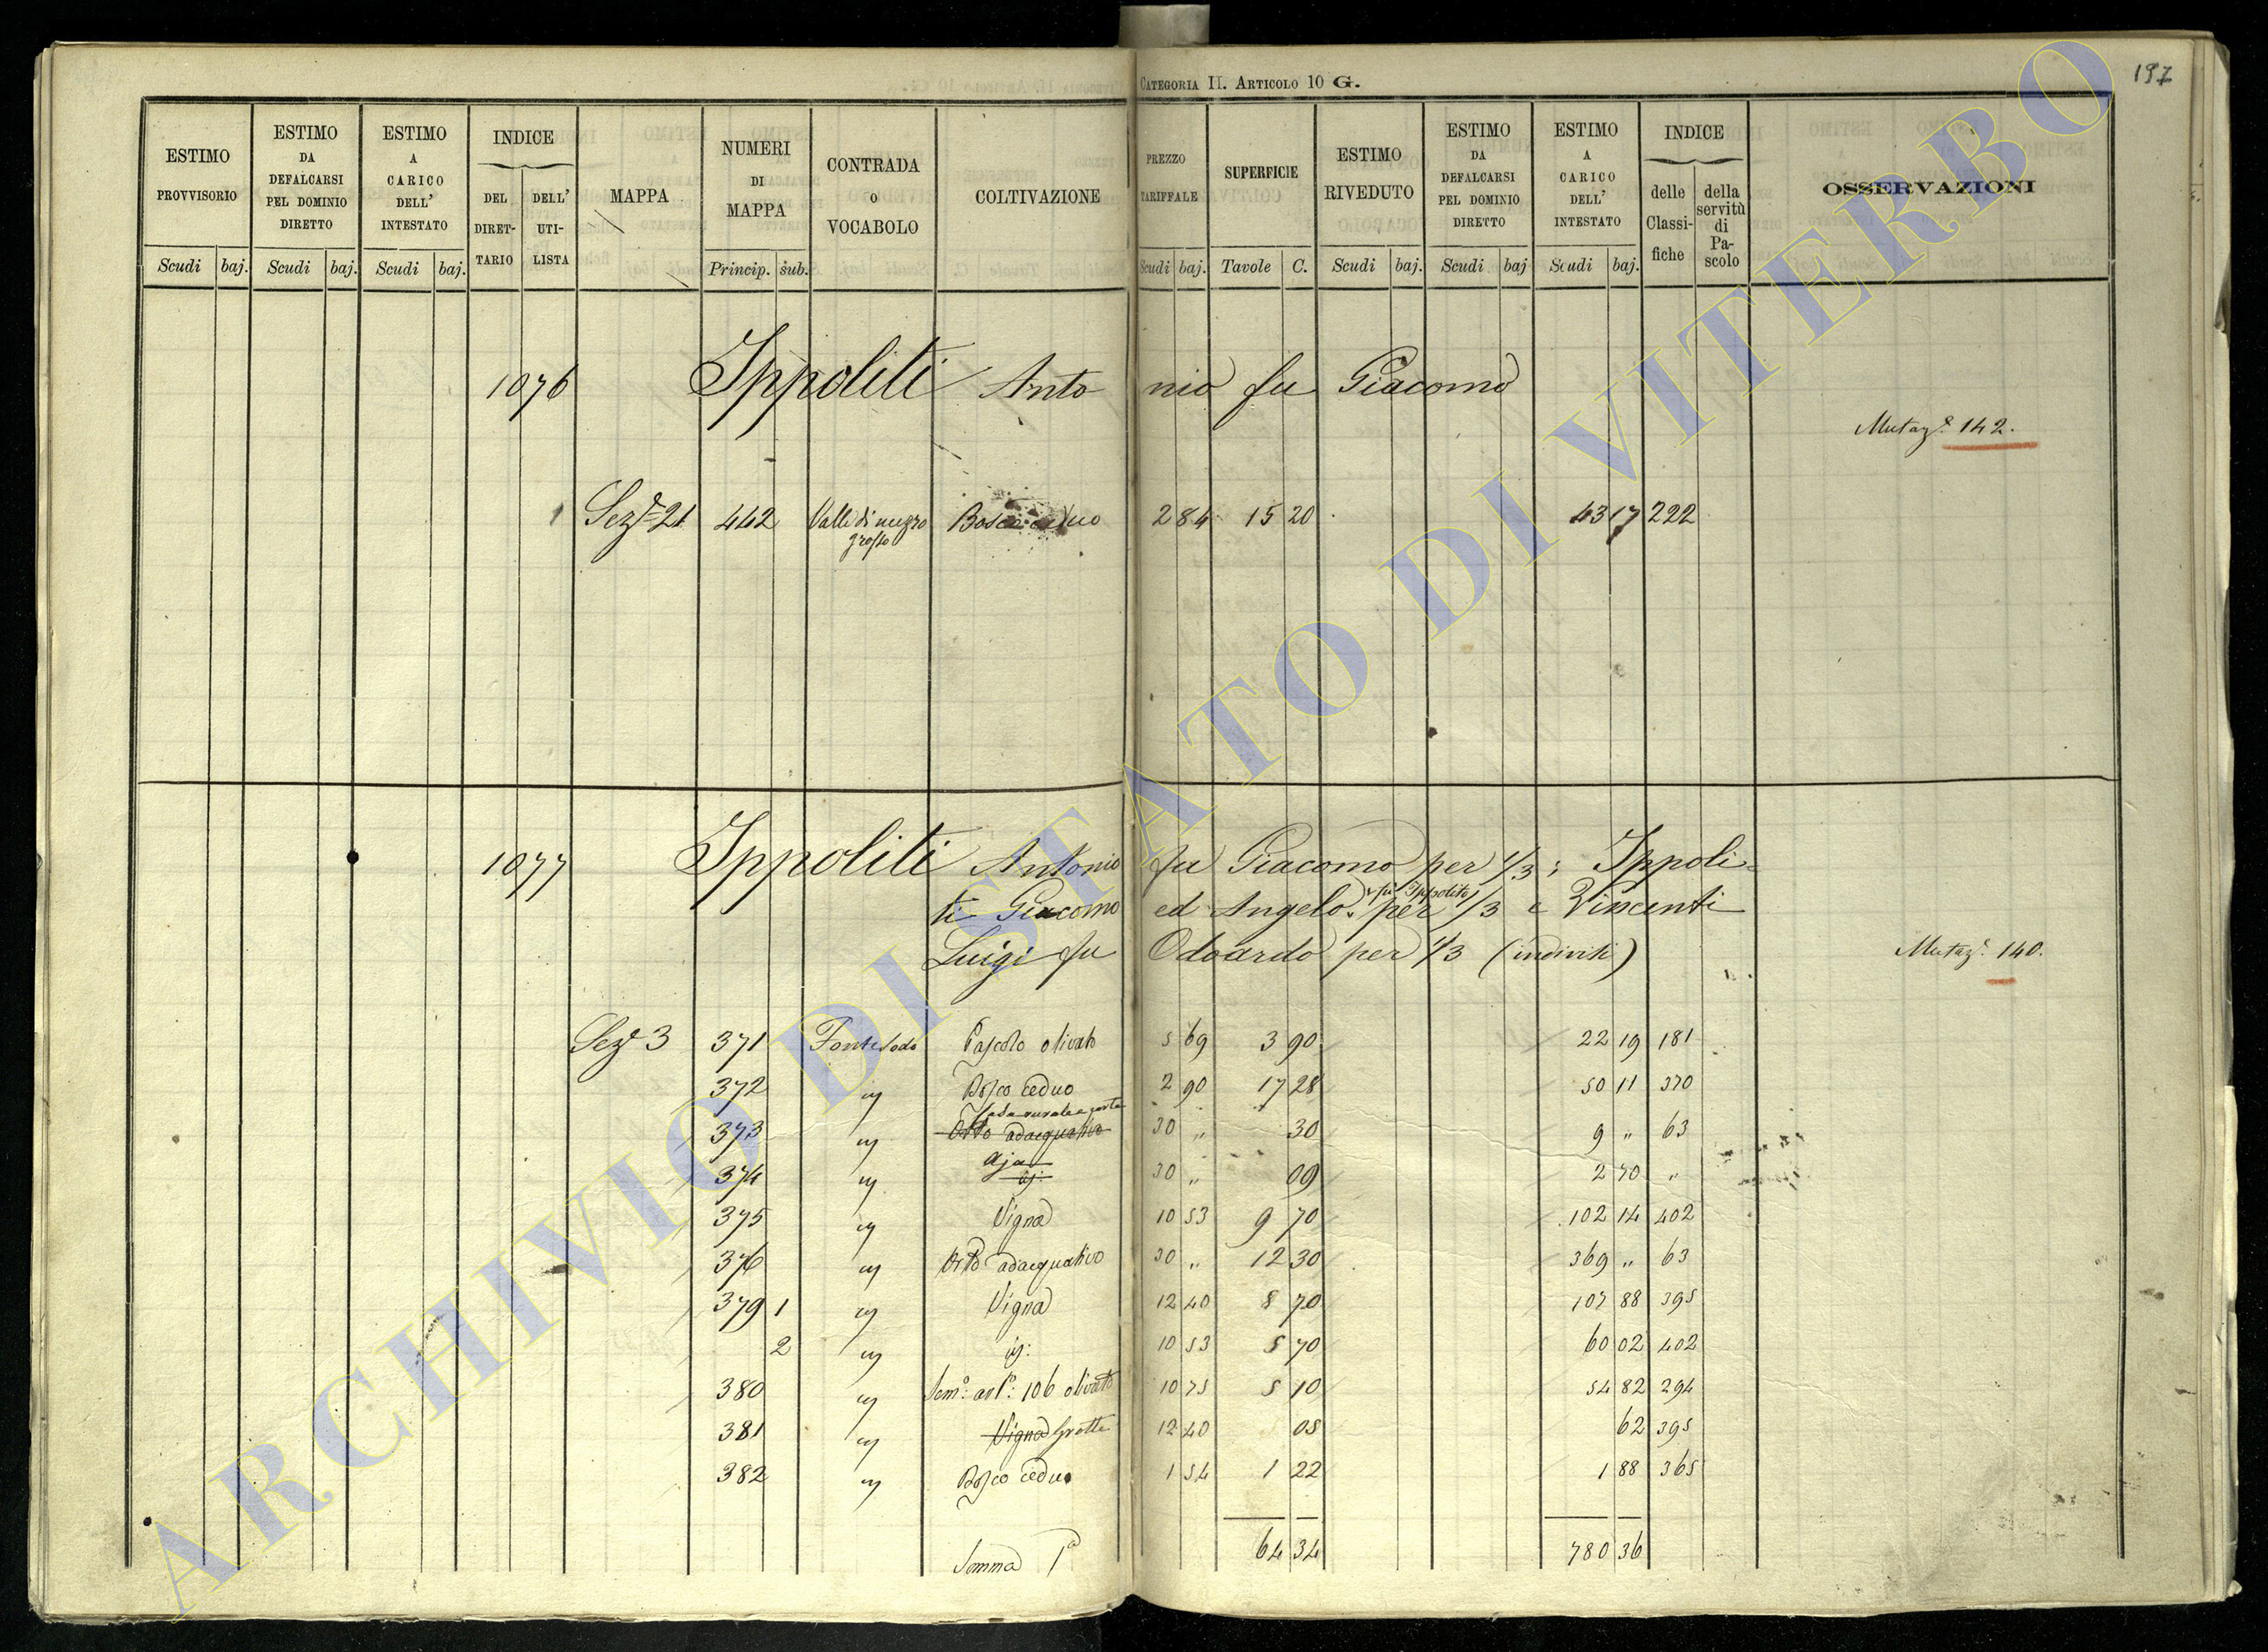 Categoria II. Articolo 10 G.
197
ESTIMO PROVVISORIO
ESTIMO DA DEFALCARSI PEL DOMINIO DIRETTO
ESTIMO A CARICO DELL' INTESTATO
INDICE
DEL DIRET-TARIO
DELL' UTI-LISTA
MAPPA
NUMERI DI MAPPA
CONTRADA o VOCABOLO
COLTIVAZIONE
PREZZO TARIFFALE
SUPERFICIE
ESTIMO RIVEDUTO
ESTIMO DA DEFALCARSI PEL DOMINIO DIRETTO
ESTIMO A CARICO DELL' INTESTATO
INDICE
delle Classi-fiche
della servitù di Pa-scolo
OSSERVAZIONI
Scudi baj. Scudi baj. Scudi baj. Princip. sub. Scudi baj. Tavole C. Scudi baj. Scudi baj Scudi baj.
1076 Ippoliti Antonio fu Giacomo
Mutaz.e 142.
Sez.e 21 442 Valle di mezzo Bosco ceduo 2 84 15 20 43 17 222
grosso
1077 Ippoliti Antonio fu Giacomo per 1/3; Ippoli=
fu Ippolito
ti Giacomo ed Angelo per 1/3 e Vincenti
Luigi fu Odoardo per 1/3 (indivisi)
Mutaz.e 140.
Sez.e 3 371 Fontesodo Pascolo olivato 5 69 3 90 22 19 181
372 " Bosco ceduo 2 90 17 28 50 11 370
Casa rurale e corte
373 " Orto adacquativo 30 " 30 9 " 63
Aja
374 " id. 30 " 09 2 70 "
375 " Vigna 10 53 9 70 102 14 402
376 " Orto adacquativo 30 " 12 30 369 " 63
379 1 " Vigna 12 40 8 70 107 88 395
2 " id: 10 53 5 70 60 02 402
380 " Sem.o arb.o: 106 olivato 10 75 5 10 54 82 294
381 " Vigna Grotte 12 40 05 62 395
382 " Bosco ceduo 1 54 1 22 1 88 365
Somma 1a 64 34 780 36
ARCHIVIO DI STATO DI VITERBO